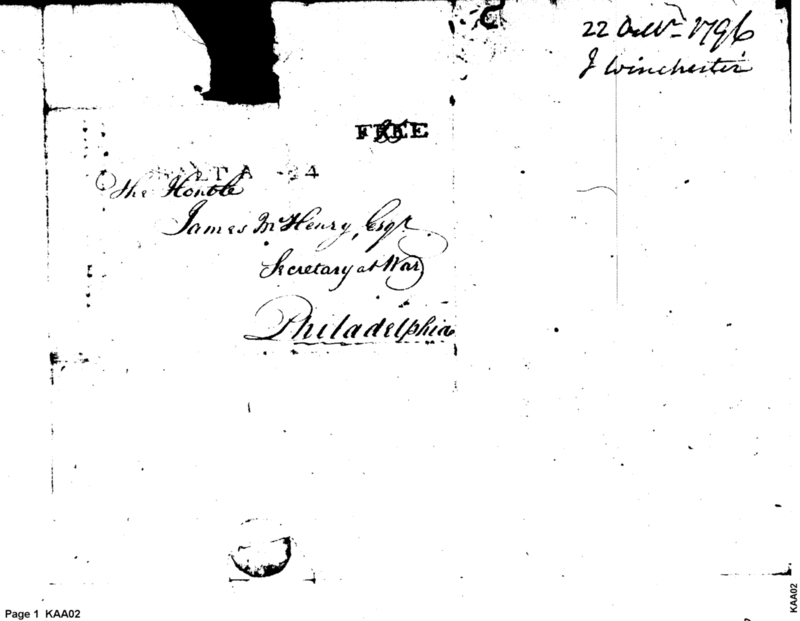 22 Octbr 1796
J Winchester
FREE
BALTA -24
The Honble
James McHenry, Esqr
Secretary at War
Philadelphia
Page 1 KAA02
KAA02